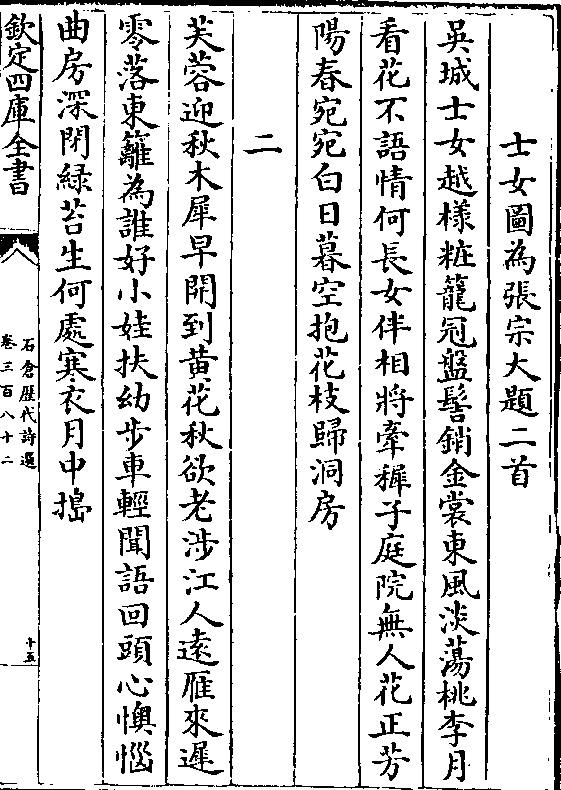 士女圖為張宗大題二首
吳城士女越樣粧籠冠盤髻銷金裳東風淡蕩桃李月
看花不語情何長女伴相將牽穉子庭院無人花正芳
陽春宛宛白日暮空抱花枝歸洞房
二
芙蓉迎秋木犀早開到黄花秋欲老涉江人逺雁來遲
零落東籬為誰好小娃扶幼步車輕聞語回頭心懊惱
曲房深閉緑苔生何處寒衣月中搗
欽定四庫全書
石倉歴代詩選
卷三百八十二
十五